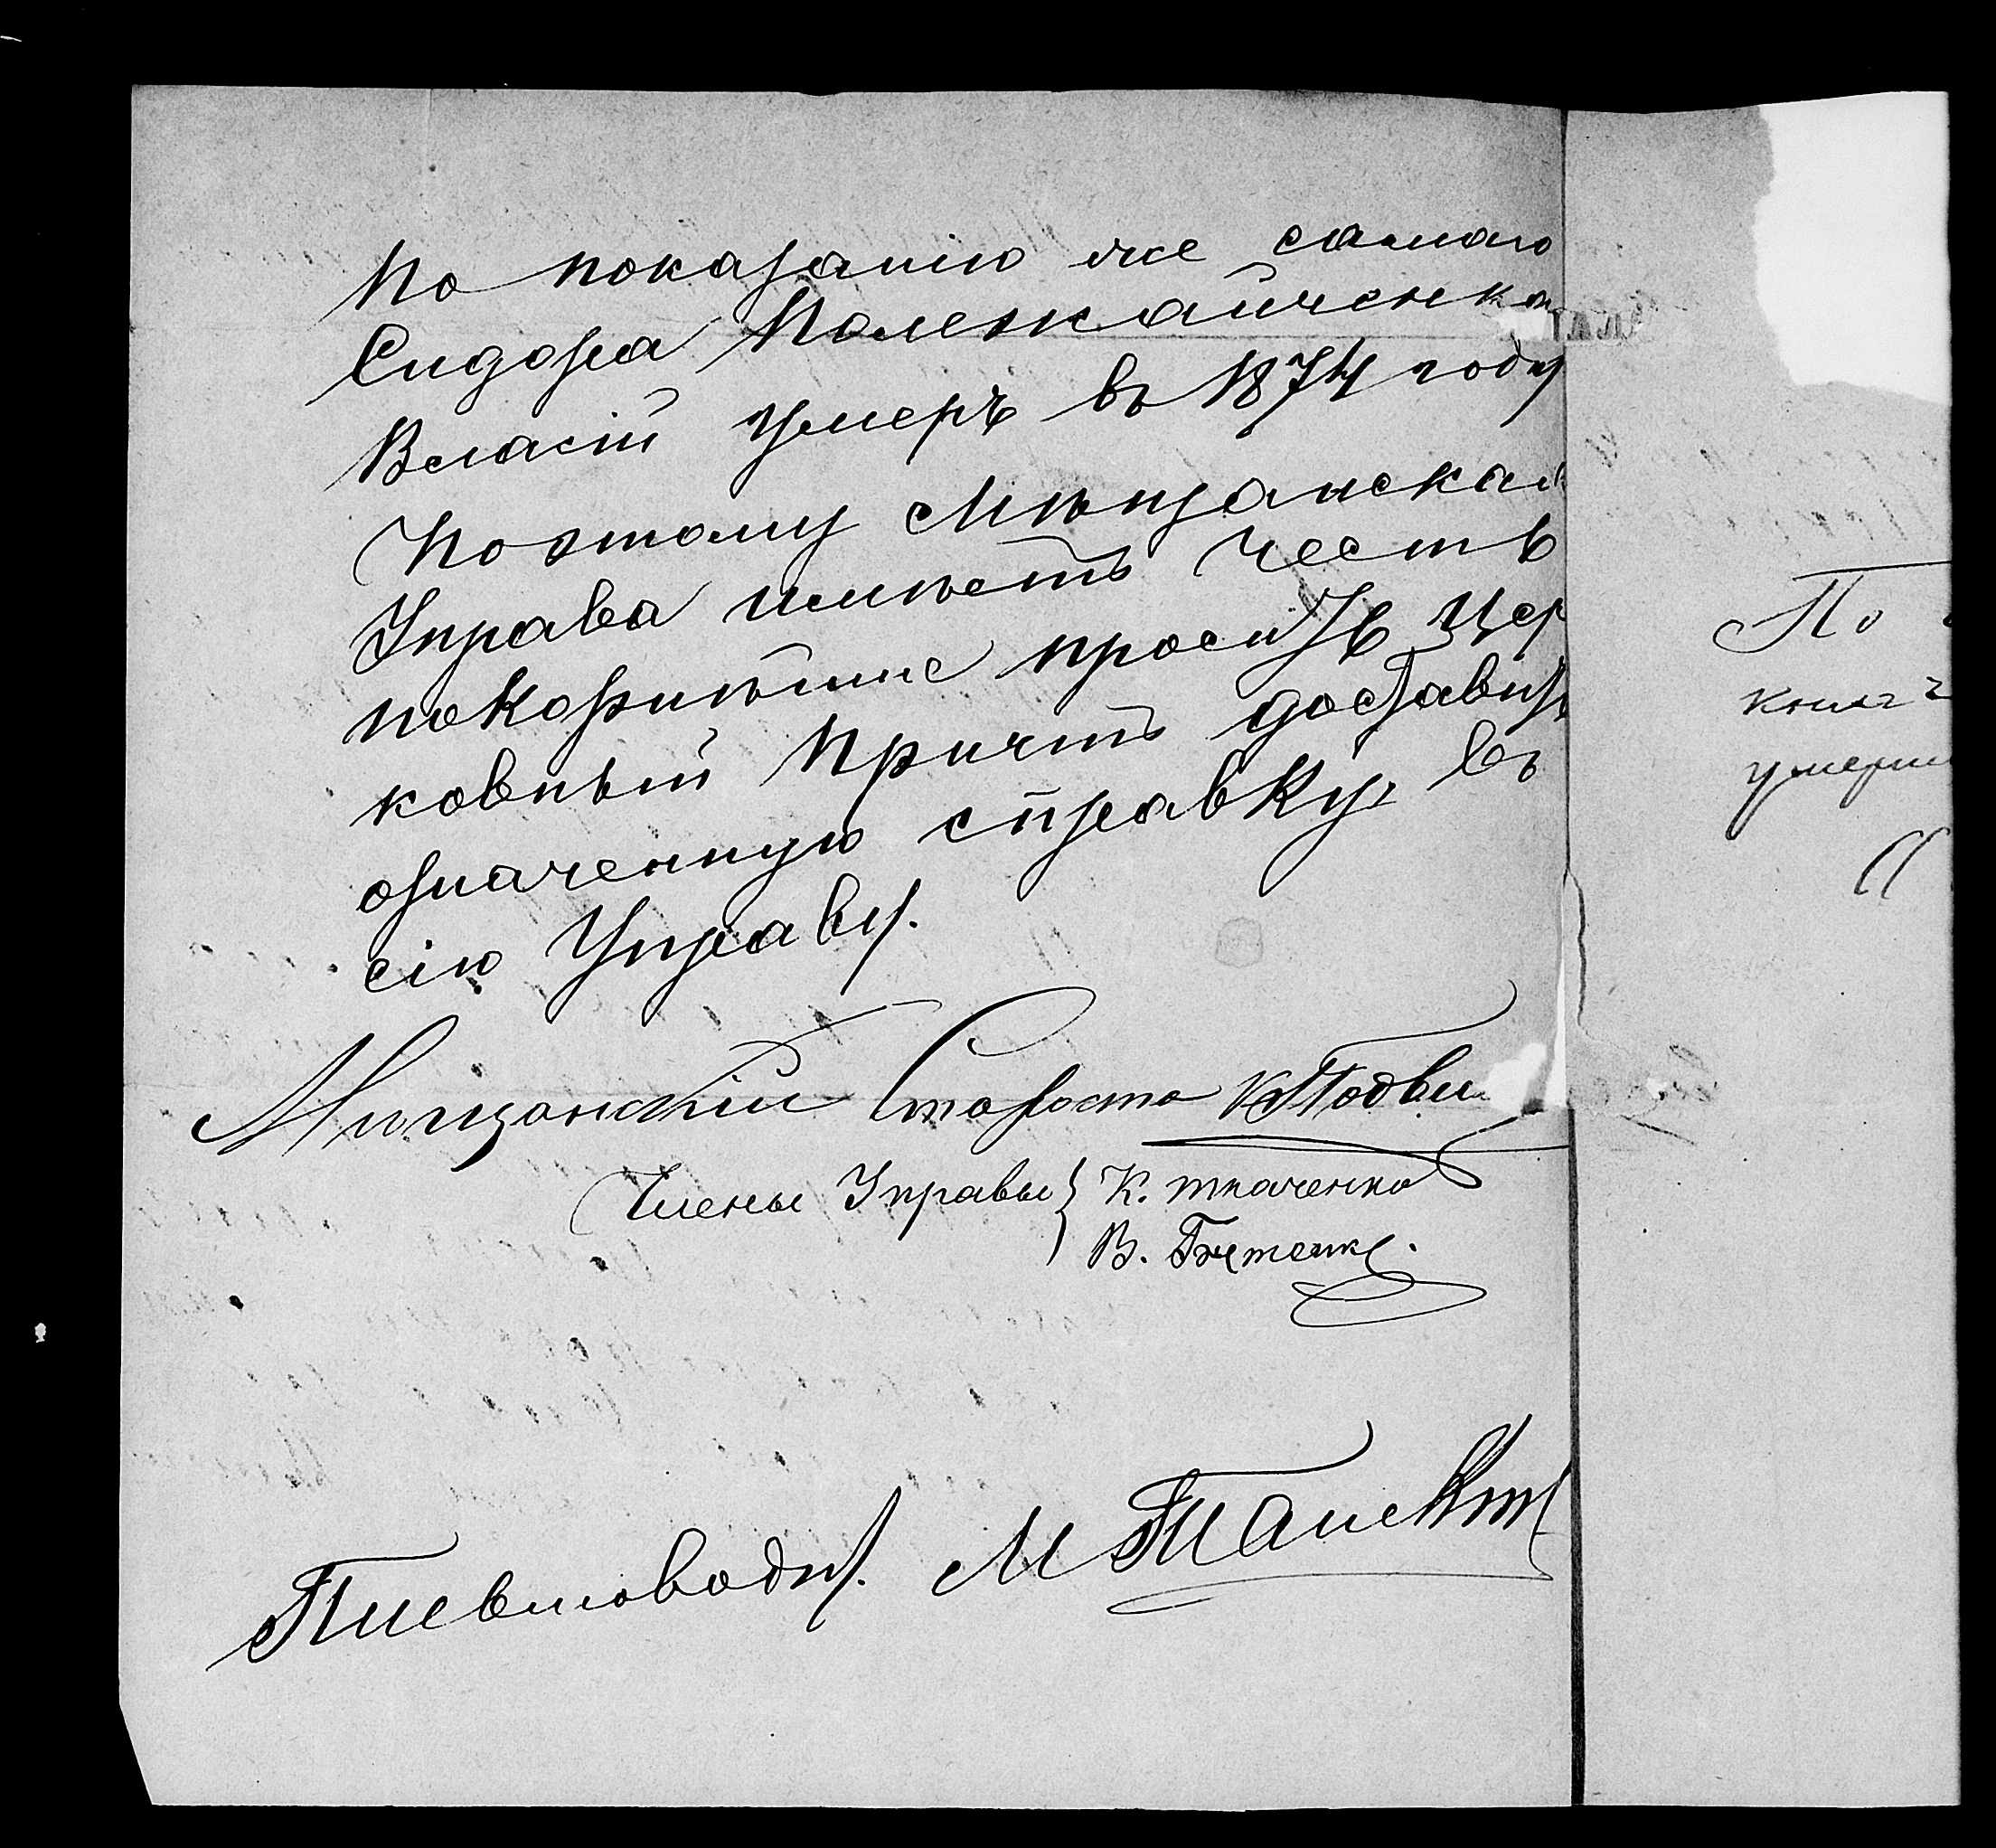 По показанію же самаго
Сидора Полежайченка
Власій умеръ въ 1874 году
Поэтому Мѣщанская
Управа имѣетъ честь
покорнѣйше просить Цер
ковный Причтъ доставить
означенную справку, въ
сію Управу.
Мѣщанскій Староста К Подви
Члены Управы } К. Ткаченко
В.
Письмоводит. М
По
книг
умерш